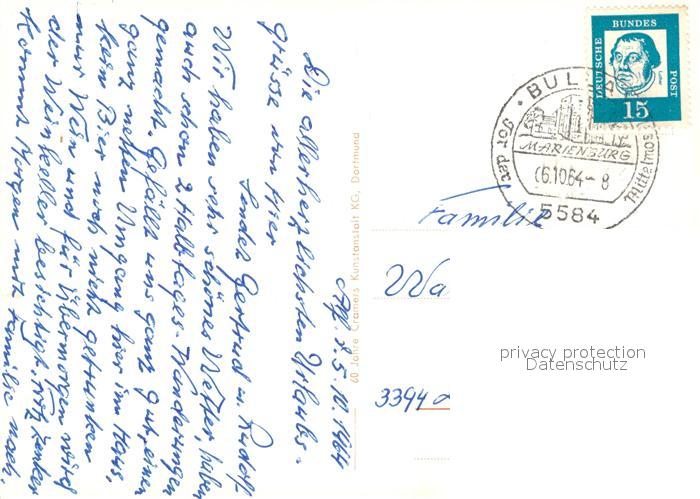 Alf, d. 5.10.1964
Die allerherzlichsten Urlaubs-
grüsse von hier
senden Gertrud u. Rudolf
Wir haben sehr schönes Wetter, haben
auch schon 2 Halbtages-Wanderungen
gemacht. Gefällt uns ganz gut, einen
ganz netten Umgang hier im Haus,
kein Bier noch nicht getrunken
nur Wein und für übermorgen wird
der Weinkeller besichtigt.
kommt morgen mit Familie nach.
60 Jahre Cramers Kunstanstalt KG, Dortmund
DEUTSCHE BUNDESPOST
Luther
15
BULLAY
Tor der Mittelmosel
MARIENBURG
06.10.64-8
5584
Familie
Wa
3394
privacy protection
Datenschutz